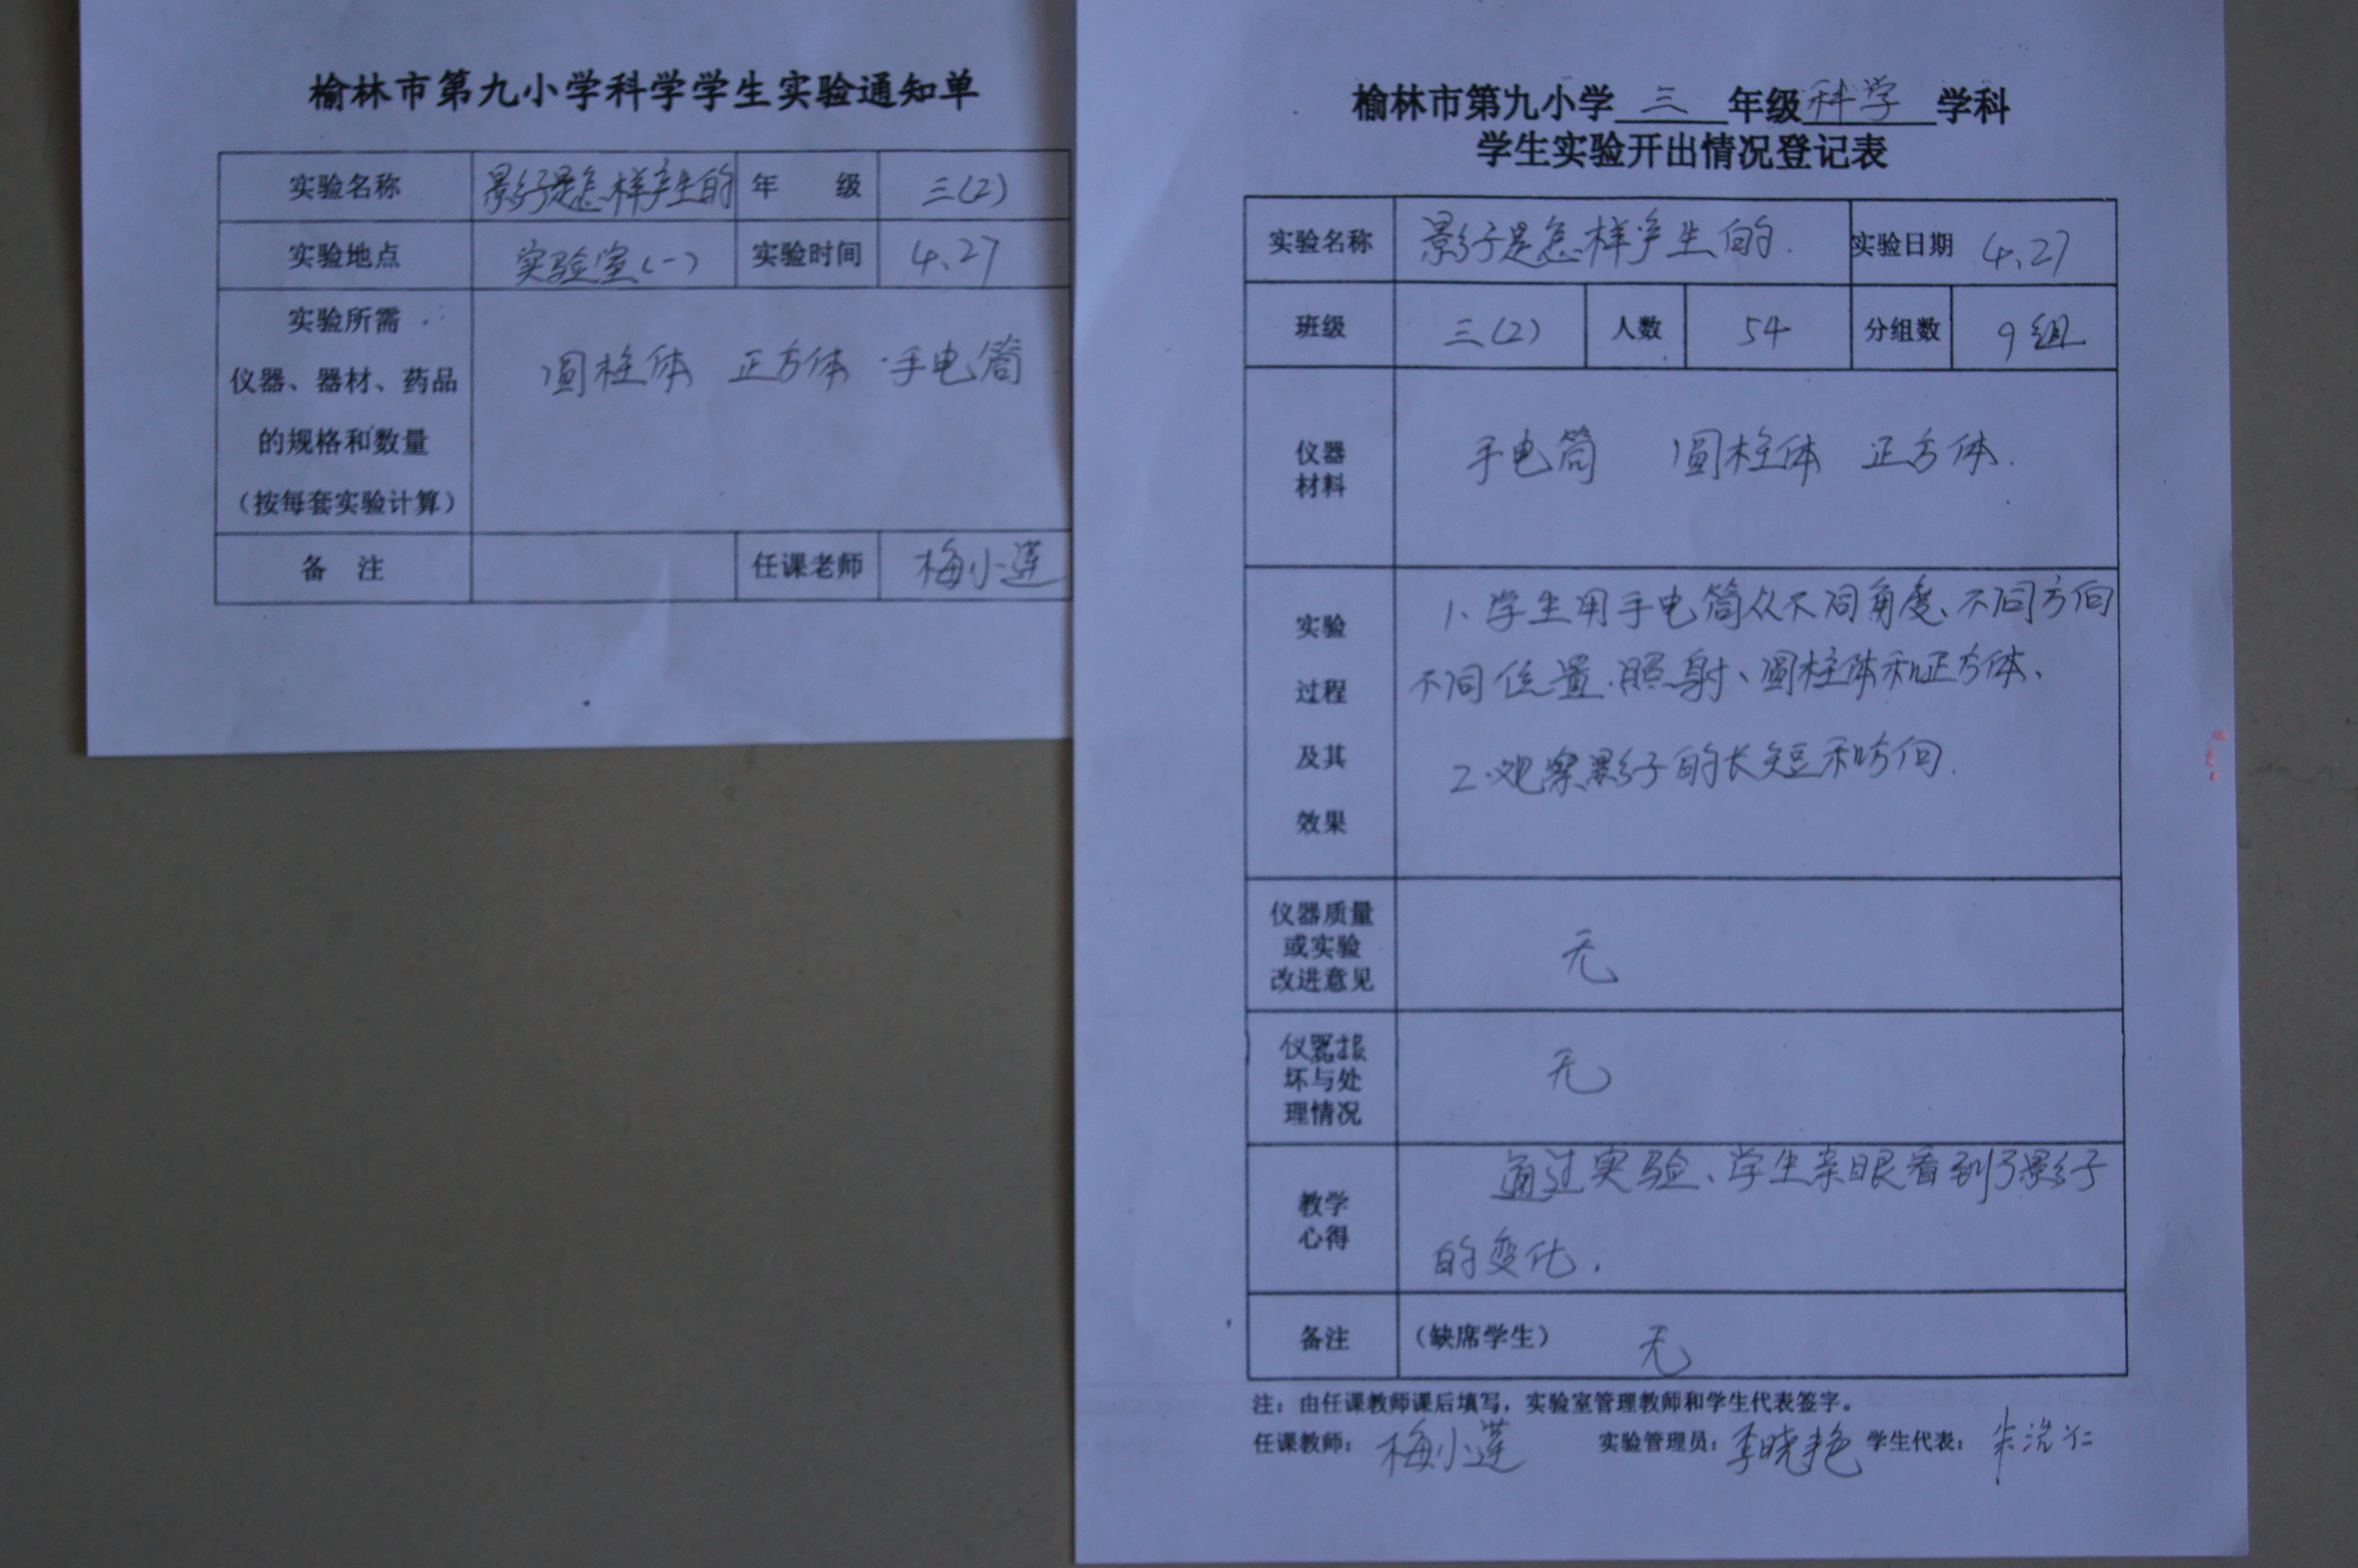 榆林市第九小学科学学生实验通知单
实验名称 影子是怎样产生的 年 级 三(2)
实验地点 实验室(一) 实验时间 4.27
实验所需
仪器、器材、药品
的规格和数量
（按每套实验计算）
圆柱体 正方体 手电筒
备 注 任课老师 梅小莲
榆林市第九小学 三 年级 科学 学科
学生实验开出情况登记表
实验名称 影子是怎样产生的. 实验日期 4.27
班级 三(2) 人数 54 分组数 9组
仪器
材料
手电筒 圆柱体 正方体.
实验
过程
及其
效果
1、学生用手电筒从不同角度、不同方向
不同位置.照射、圆柱体和正方体、
2.观察影子的长短和方向.
仪器质量
或实验
改进意见
无
仪器损
坏与处
理情况
无
教学
心得
通过实验、学生亲眼看到了影子
的变化.
备注 （缺席学生） 无
注：由任课教师课后填写，实验室管理教师和学生代表签字。
任课教师： 梅小莲 实验管理员： 李晓艳 学生代表： 朱